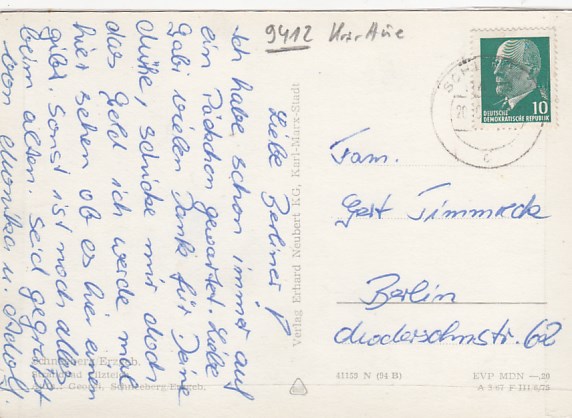 9412 Krs. Aue
Liebe Berliner!
Ich habe schon immer auf
ein Päckchen gewartet. Liebe
Gabi vielen Dank für Deine
Mühe, schicke mir doch
das Geld ich werde mit
hier sehen ob es hier einen
gibt. Sonst ist noch alles
beim alten. Seid gegrüßt
von Monika u.
Fam.
Gert Timmreck
Berlin
Moderschnstr. 62
DEUTSCHE
DEMOKRATISCHE REPUBLIK
10
Verlag Erhard Neubert KG, Karl-Marx-Stadt
Schneeberg Erzgeb.
Filzteich
Schneeberg-Erzgeb.
41153 N (94 B)
EVP MDN -,20
A 5 67 F III 6/75